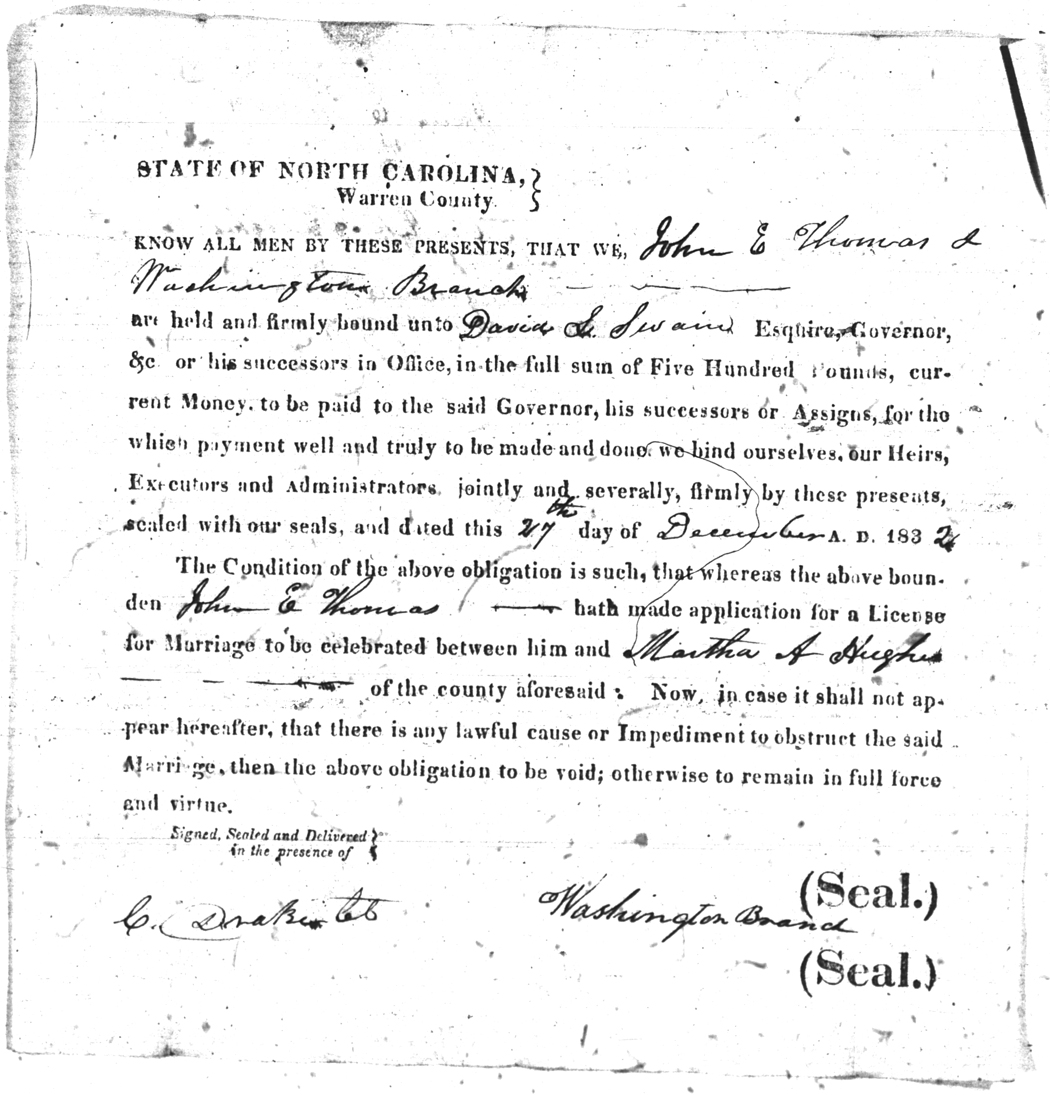 STATE OF NORTH CAROLINA,
Warren County.
KNOW ALL MEN BY THESE PRESENTS, THAT WE, John E Thomas &
Washington Branch
are held and firmly bound unto David L Swain Esquire, Governor,
&c or his successors in Office, in the full sum of Five Hundred Pounds, cur-
rent Money, to be paid to the said Governor, his successors or Assigns, for the
which payment well and truly to be made and done, we bind ourselves, our Heirs,
Executors and Administrators, jointly and severally, firmly by these presents,
sealed with our seals, and dated this 27th day of December A. D. 1832
The Condition of the above obligation is such, that whereas the above boun-
den John E Thomas hath made application for a License
for Marriage to be celebrated between him and Martha A Hughes
of the county aforesaid: Now, in case it shall not ap-
pear hereafter, that there is any lawful cause or Impediment to obstruct the said
Marriage, then the above obligation to be void; otherwise to remain in full force
and virtue.
Signed, Sealed and Delivered
in the presence of
(Seal.)
C. Drake Washington Branch
(Seal.)